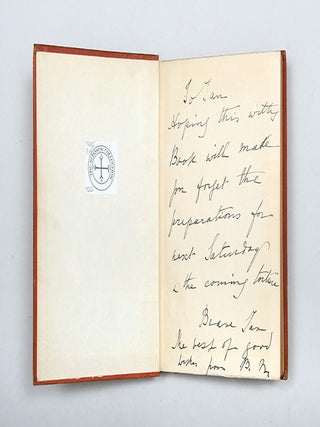 To Ian
Hoping this witty
Book will make
you forget the
preparations for
next Saturday
& the coming torture
Brave Ian
The best of good
wishes from B. M